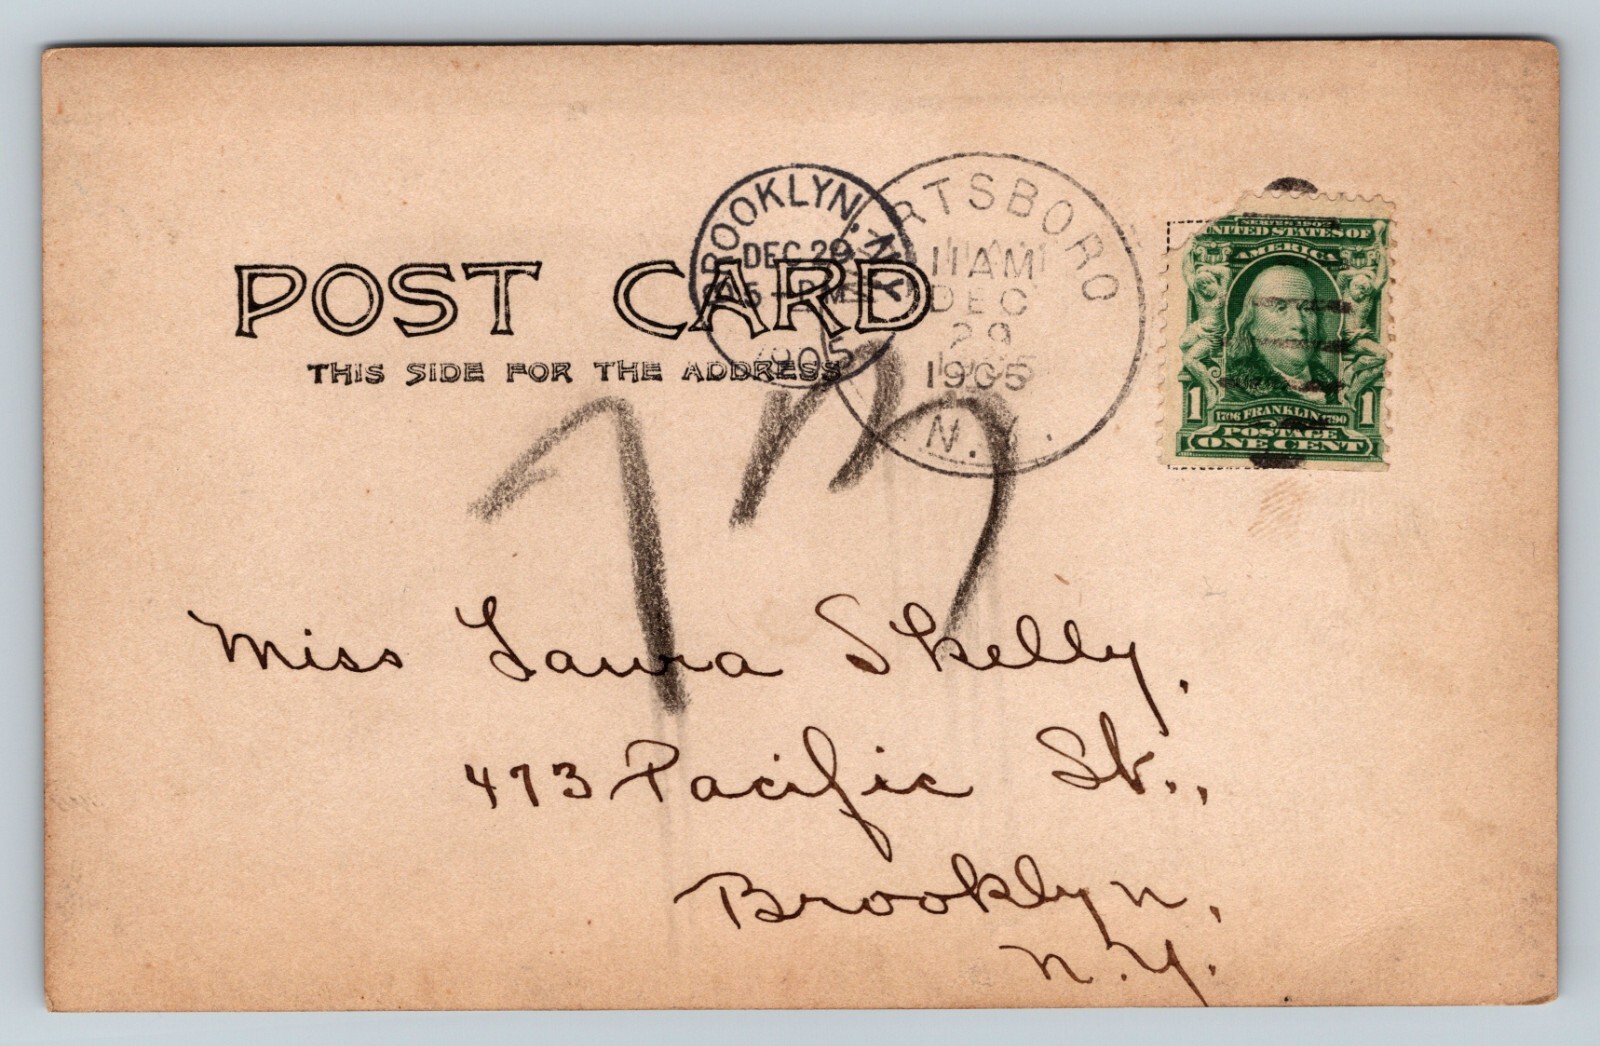 POST CARD
THIS SIDE FOR THE ADDRESS
BROOKLYN, N.Y.
DEC 29
5 - PM
1905
RTSBORO
11 AM
DEC
29
1905
N.Y.
SERIES 1902
UNITED STATES OF
AMERICA
1 1
1706 FRANKLIN 1790
POSTAGE
ONE CENT
Miss Laura Skelly,
473 Pacific St.,
Brooklyn,
N.Y.